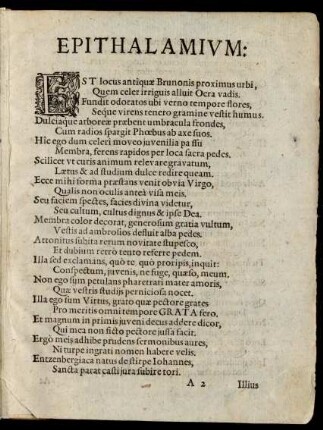 EPITHALAMIVM:
EST locus antiquæ Brunonis proximus urbi,
Quem celer irriguis alluit Ocra vadis.
Fundit odoratos ubi verno tempore flores,
Seque virens tenero gramine vestit humus.
Dulciaque arboreæ præbent umbracula frondes,
Cum radios spargit Phœbus ab axe suos.
Hic ego dum celeri moveo juvenilia passu
Membra, ferens rapidos per loca sacra pedes.
Scilicet ut curis animum relevare gravatum,
Lætus & ad studium dulce redire queam.
Ecce mihi forma præstans venit obvia Virgo,
Qualis non oculis anteà visa meis.
Seu faciem spectes, facies divina videtur,
Seu cultum, cultus dignus & ipse Dea.
Membra color decorat, generosum gratia vultum,
Vestis ad ambrosios defluit alba pedes.
Attonitus subita rerum novitate stupesco,
Et dubium retrò tento referre pedem.
Illa sed exclamans, quò te quò proripis, inquit:
Conspectum, juvenis, ne fuge, quæso, meum.
Non ego sum petulans pharetrati mater amoris,
Quæ vestris studijs perniciosa nocet.
Illa ego sum Virtus, grato quæ pectore grates
Pro meritis omni tempore GRATA fero.
Et magnum in primis juveni decus addere dicor,
Qui mea non ficto pectore jussa facit.
Ergò meis adhibe prudens sermonibus aures,
Ni turpe ingrati nomen habere velis.
Entzenbergiaca natus de stirpe Iohannes,
Sancta parat casti jura subire tori.
A 2 Illius